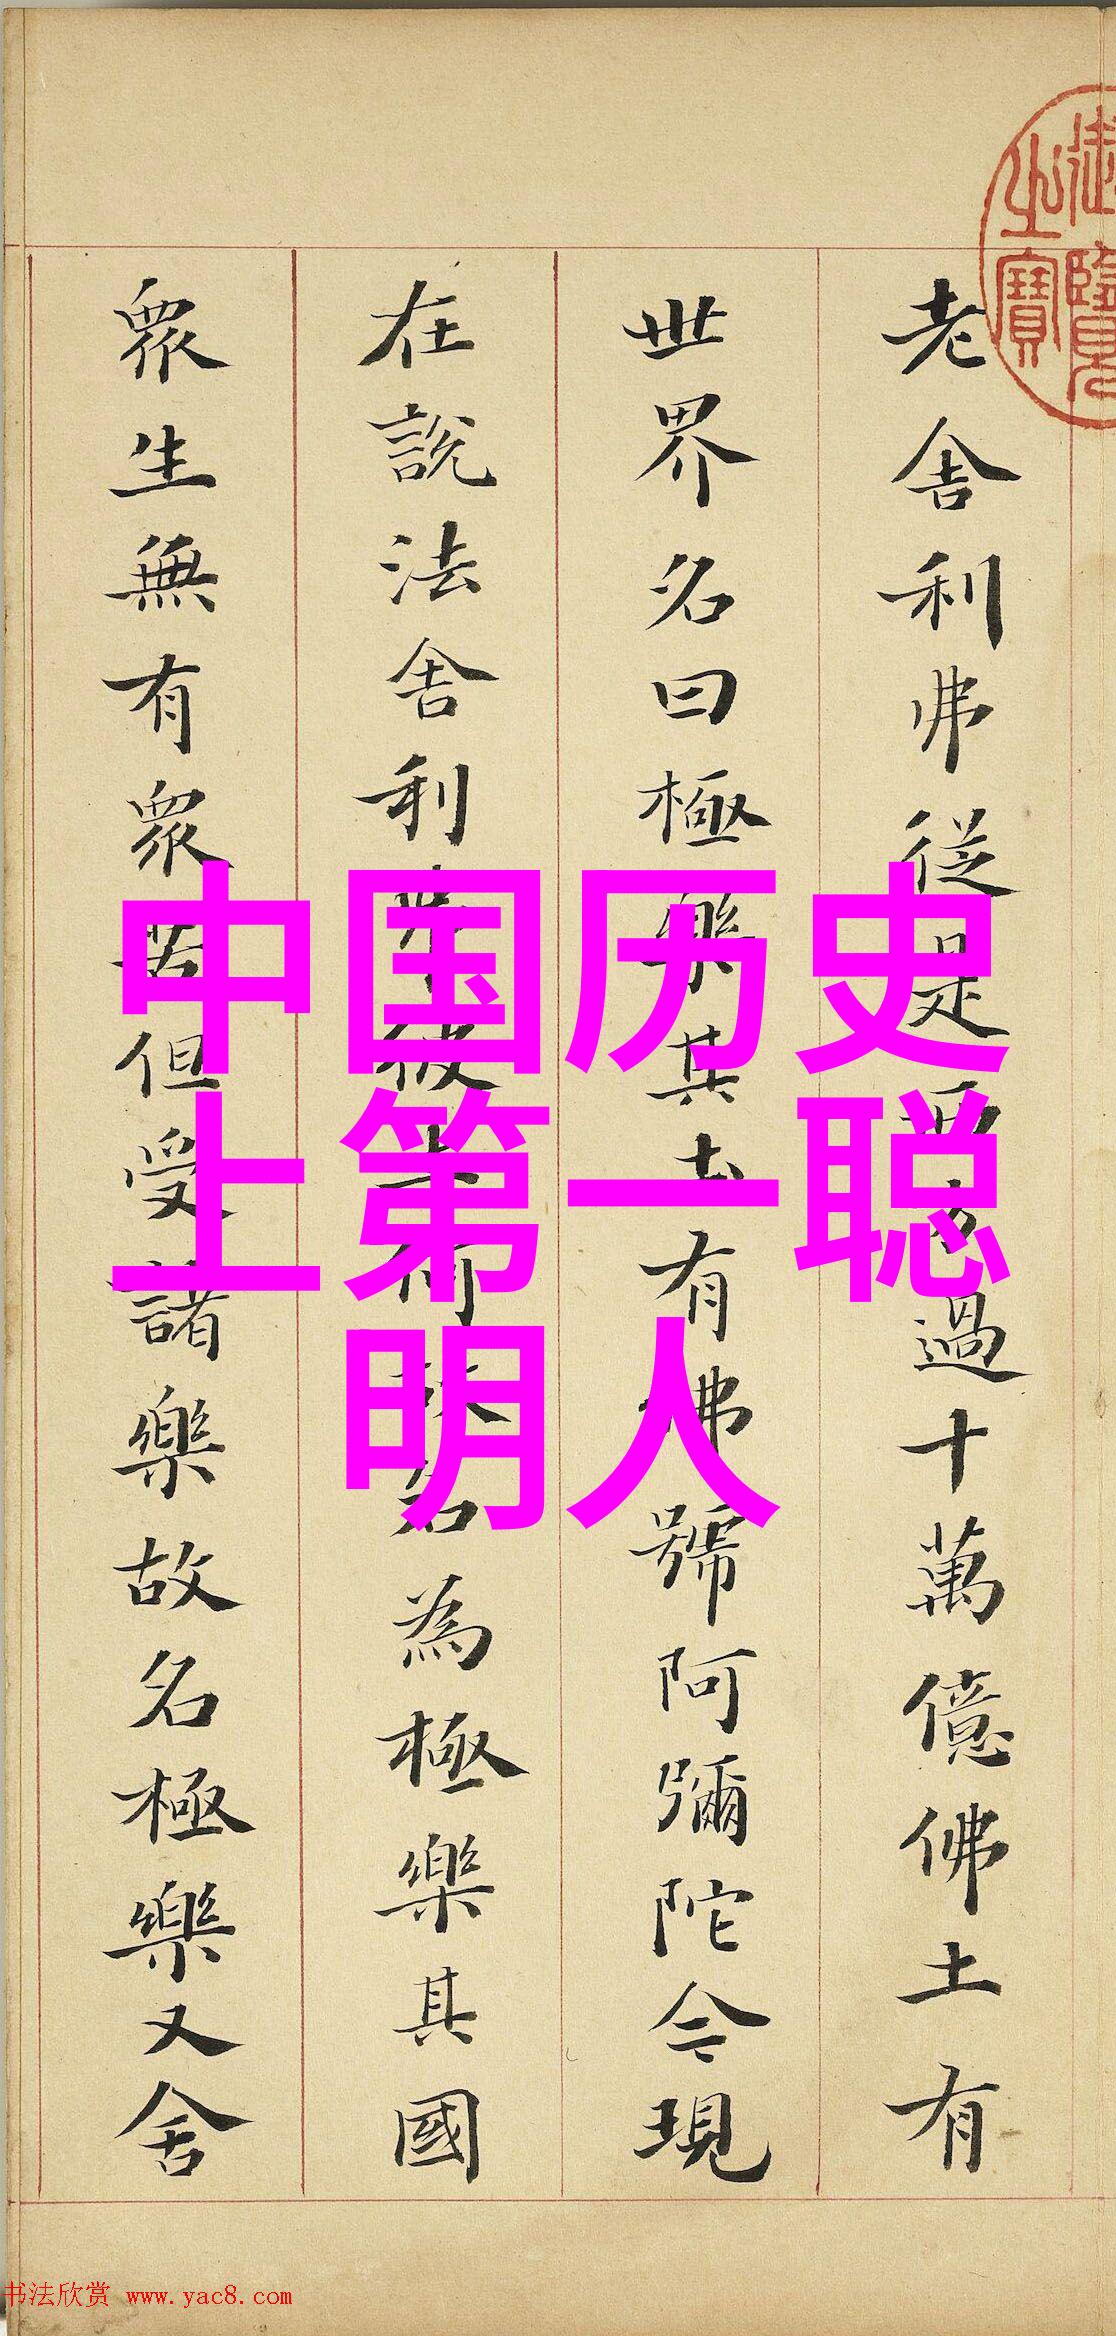 御覽
之寶
老舍利弗從是西方過十萬億佛土有
世界名曰極樂其土有佛號阿彌陀今現
在說法舍利弗彼土何故名為極樂其國
眾生無有眾苦但受諸樂故名極樂又舍
中国历史
上第一聪
明人
书法欣赏 www.yac8.com